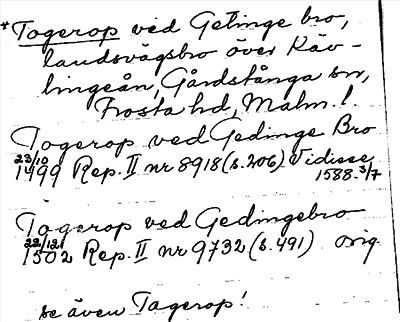 *Togerop ved Getinge bro,
landsvägsbro över Käv-
lingeån, Gårdstånga sn,
Frosta hd, Malm. l.
Togerop ved Gedinge Bro
23/10
1499 Rep. II nr 8918 (s. 206) Vidisse
1588-3/7
Togerop ved Gedingebro
22/12
1502 Rep. II nr 9732 (s. 491) orig.
se även Tagerop!